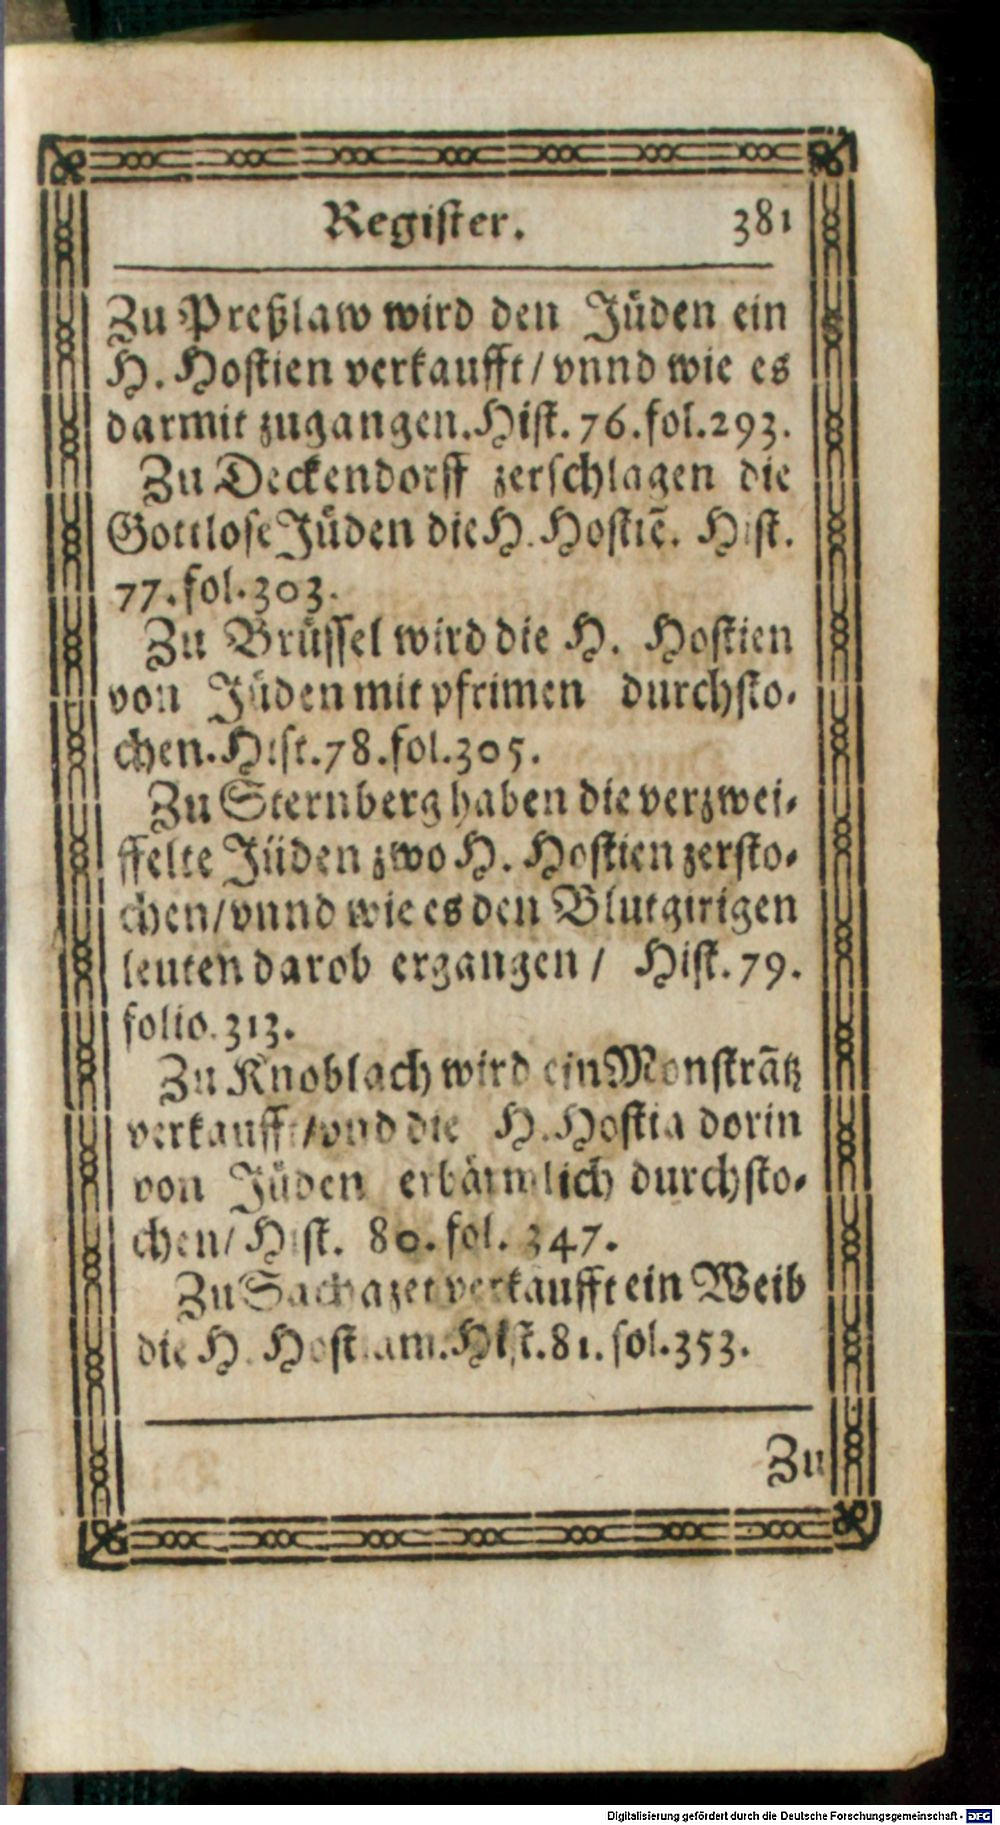 Register. 381
Zu Preßlaw wird den Jüden ein
H. Hostien verkaufft / vnnd wie es
darmit zugangen. Hist. 76. fol. 293.
Zu Deckendorff zerschlagen die
Gottlose Jüden die H. Hostiē. Hist.
77. fol. 303.
Zu Brüssel wird die H. Hostien
von Jüden mit pfrimen durchsto-
chen. Hist. 78. fol. 305.
Zu Sternberg haben die verzwei-
ffelte Jüden zwo H. Hostien zersto-
chen / vnnd wie es den Blutgirigen
leuten darob ergangen / Hist. 79.
folio. 313.
Zu Knoblach wird ein Monstrātz
verkaufft / vnd die H. Hostia dorin
von Jüden erbärmlich durchsto-
chen / Hist. 80. fol. 347.
Zu Sachazet verkaufft ein Weib
die H. Hostiam. Hist. 81. fol. 353.
Zu
Digitalisierung gefördert durch die Deutsche Forschungsgemeinschaft - DFG